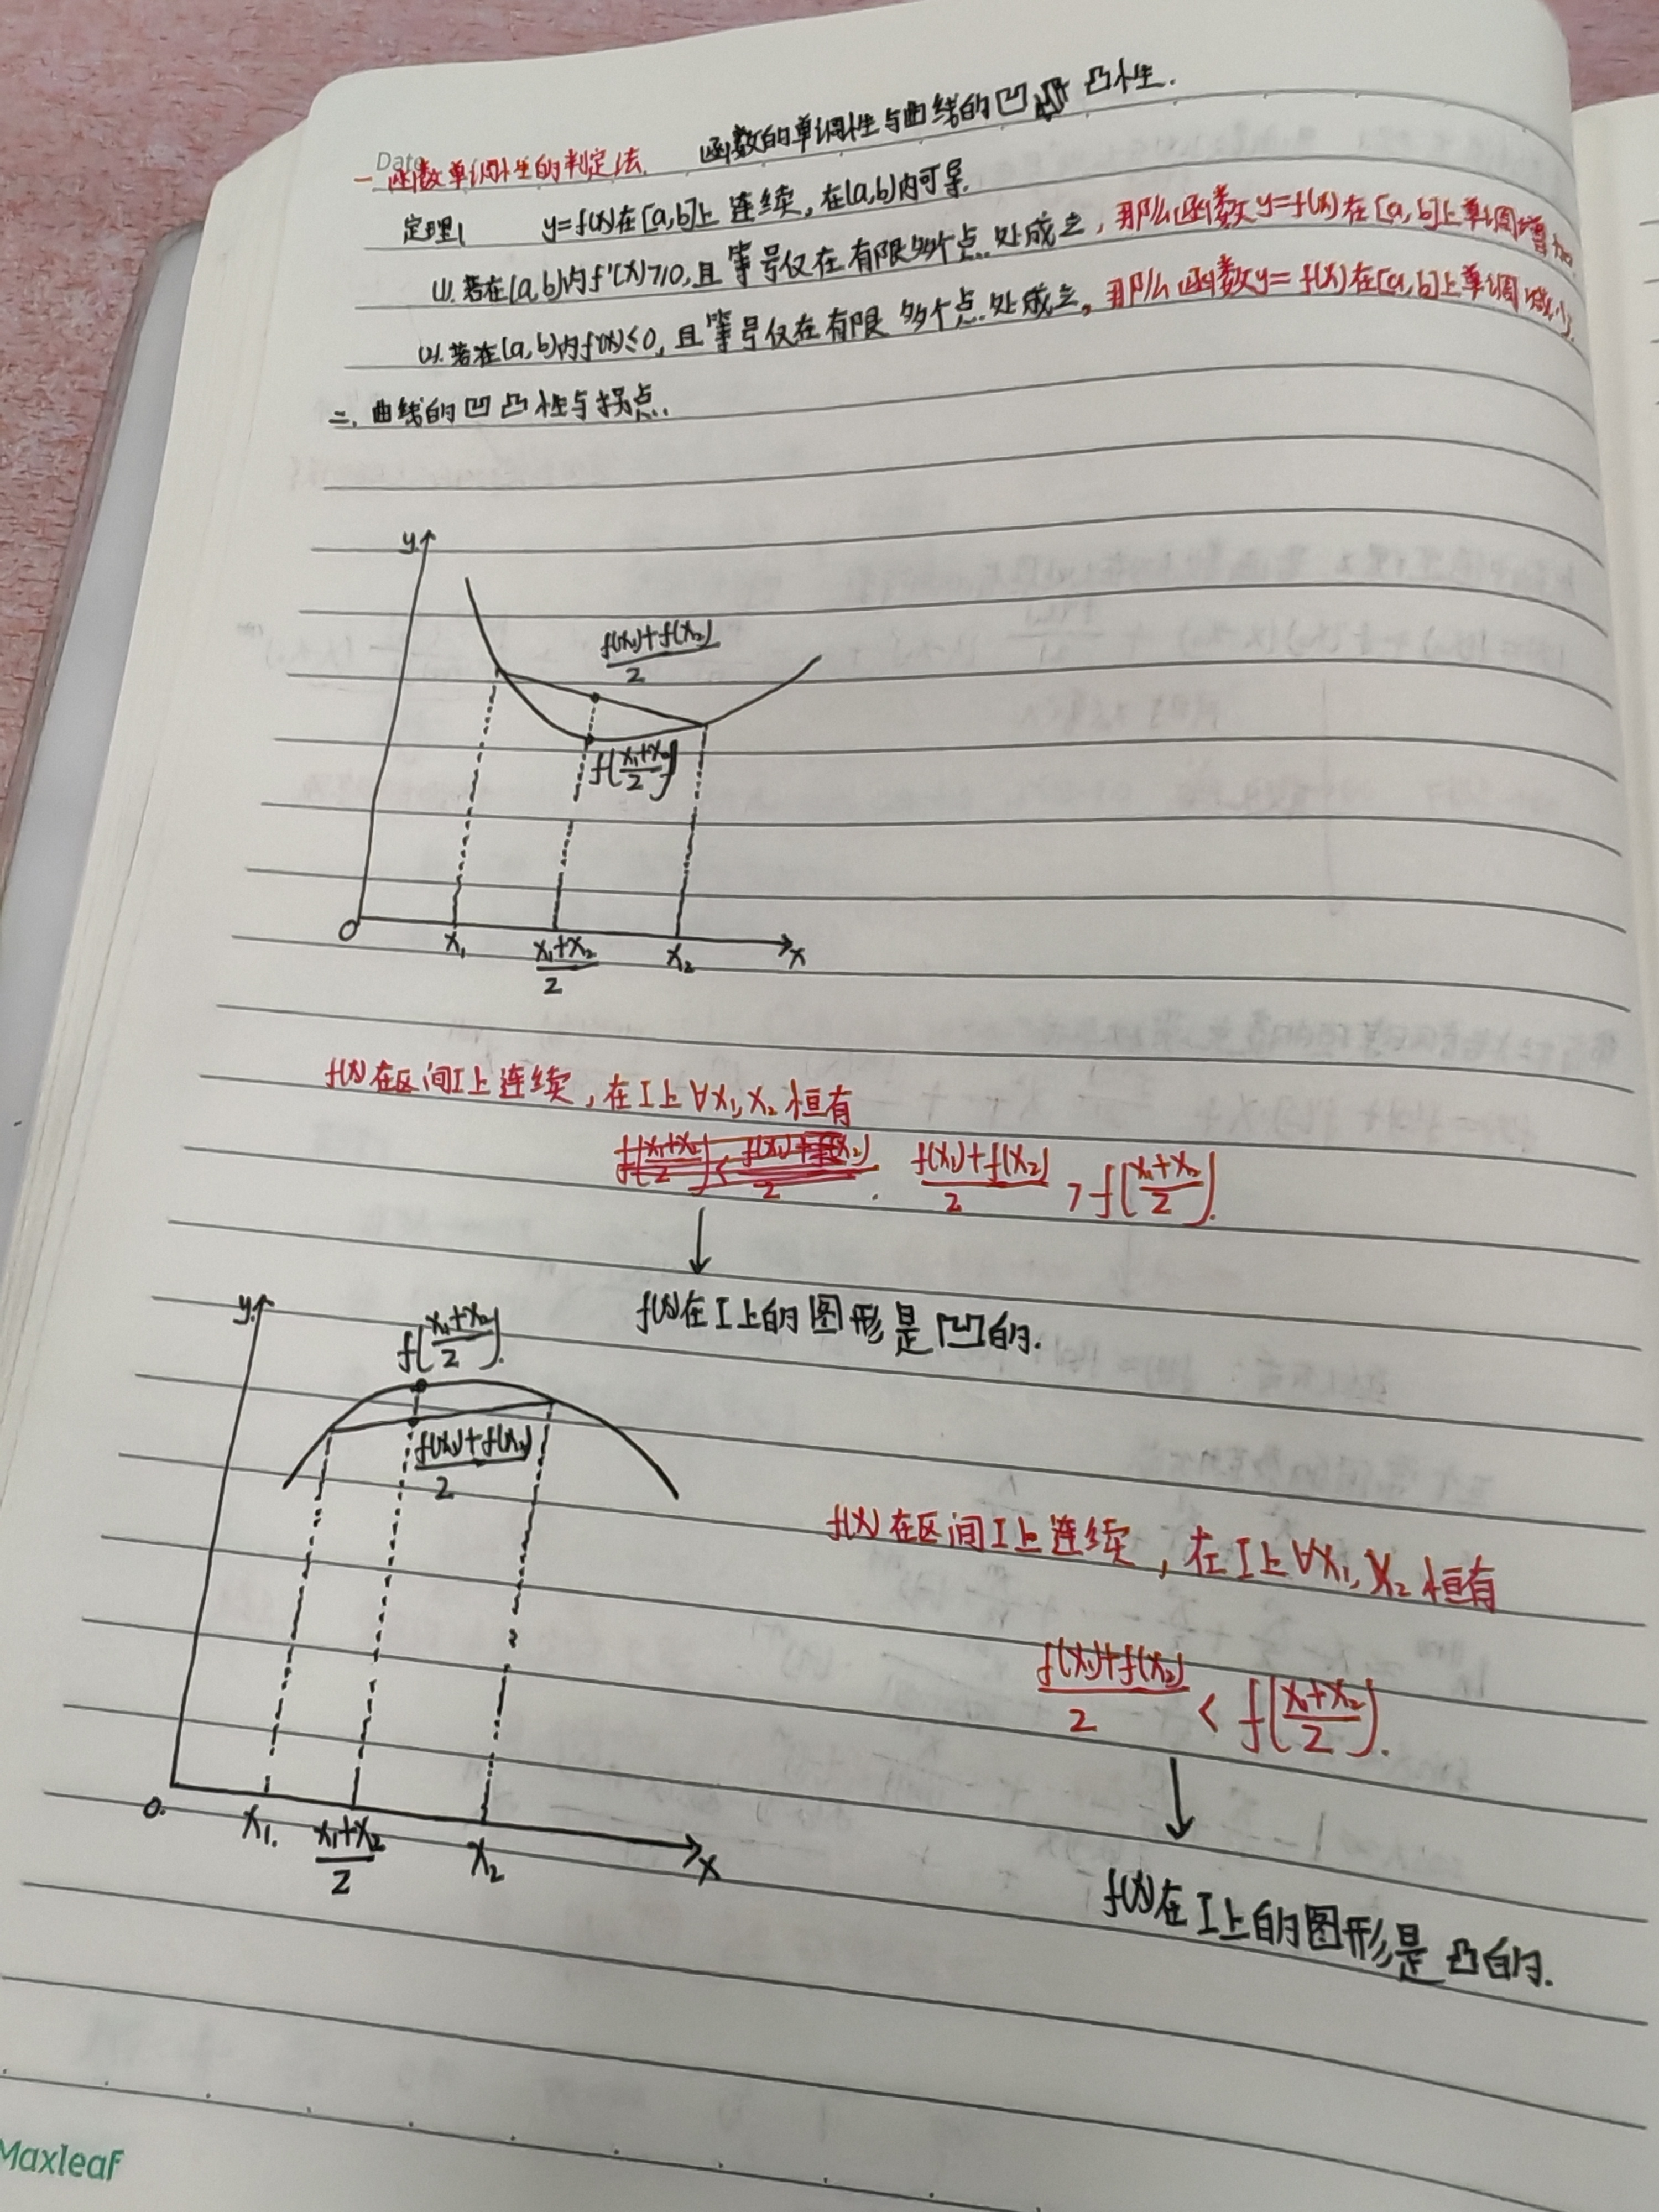 函数的单调性与曲线的凹凸性.
Date
一 函数单调性的判定法.
定理1 y=f(x)在[a,b]上连续,在(a,b)内可导.
(1).若在(a,b)内f'(x)≥0,且等号仅在有限多个点处成立,那么函数y=f(x)在[a,b]上单调增加.
(2).若在(a,b)内f'(x)≤0,且等号仅在有限多个点处成立,那么函数y=f(x)在[a,b]上单调减少.
二.曲线的凹凸性与拐点.
y
(f(x₁)+f(x₂))/2
f((x₁+x₂)/2)
O x₁ (x₁+x₂)/2 x₂ x
f(x)在区间I上连续,在I上∀x₁,x₂恒有
f((x₁+x₂)/2)<(f(x₁)+f(x₂))/2. (f(x₁)+f(x₂))/2 > f((x₁+x₂)/2).
↓
f(x)在I上的图形是凹的.
y
f((x₁+x₂)/2).
(f(x₁)+f(x₂))/2
f(x)在区间I上连续,在I上∀x₁,x₂恒有
(f(x₁)+f(x₂))/2 < f((x₁+x₂)/2).
↓
O. x₁. (x₁+x₂)/2 x₂ x
f(x)在I上的图形是凸的.
Maxleaf